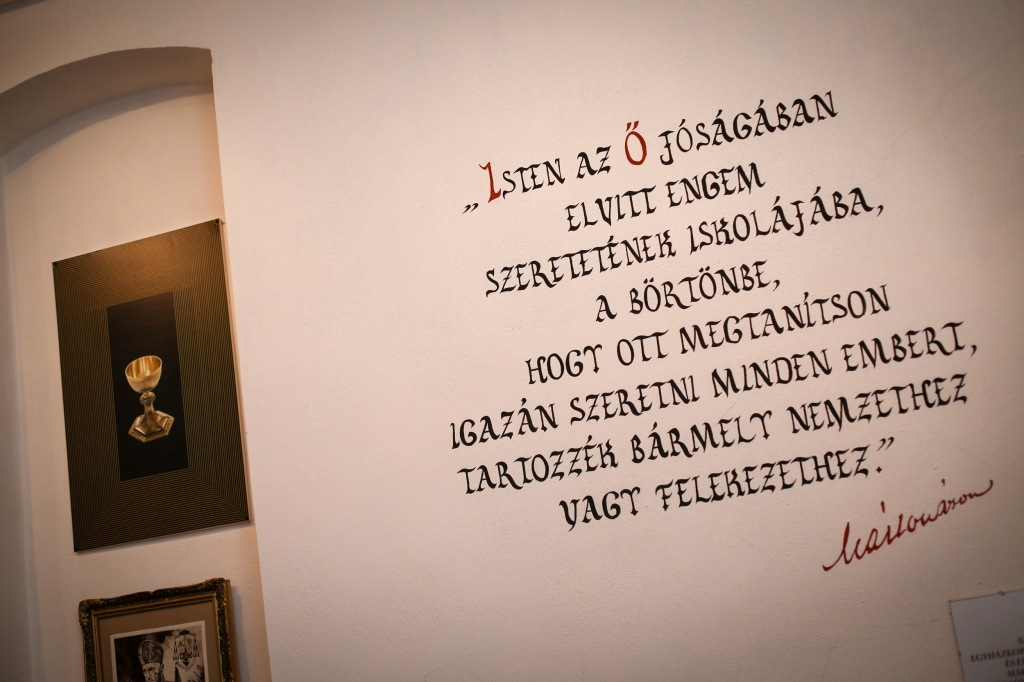 „Isten az Ő jóságában
elvitt engem
szeretetének iskolájába,
a börtönbe,
hogy ott megtanítson
igazán szeretni minden embert,
tartozzék bármely nemzethez
vagy felekezethez.”
Márton Áron